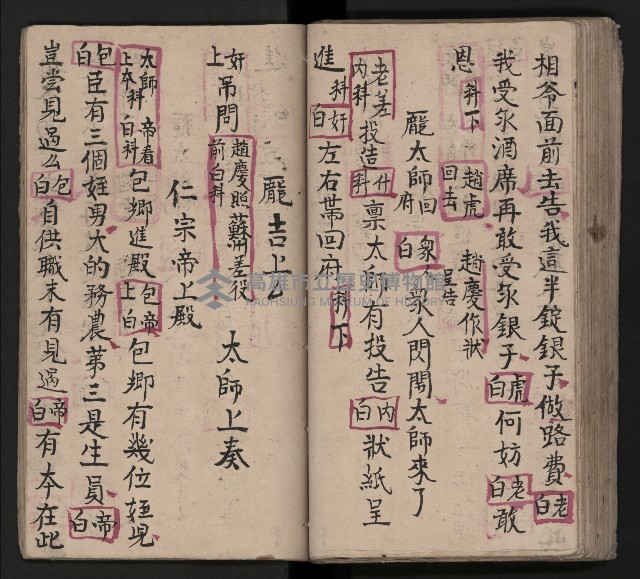 相爷面前去告我這半錠銀子做路費老白
我受尔酒席再敢受尔銀子虎白何妨老白敢
恩科下 趙虎回去 趙慶作狀呈告
龐太師回府 衆白衆人閃開太師來了
老差投造什科禀太師有投告內白狀紙呈
內科
進科奸白左右帶回府科下
龐吉上
奸上吊問趙慶照前白科蘇洲差役 太師上奏
仁宗帝上殿
太師上本科 帝看白科包卿進殿包上帝白包卿有幾位姪児
包白臣有三個姪男大的務農第三是生員帝白
豈尝見過么包白自供職未有見過帝白有本在此
高雄市立歷史博物館
KAOHSIUNG MUSEUM OF HISTORY